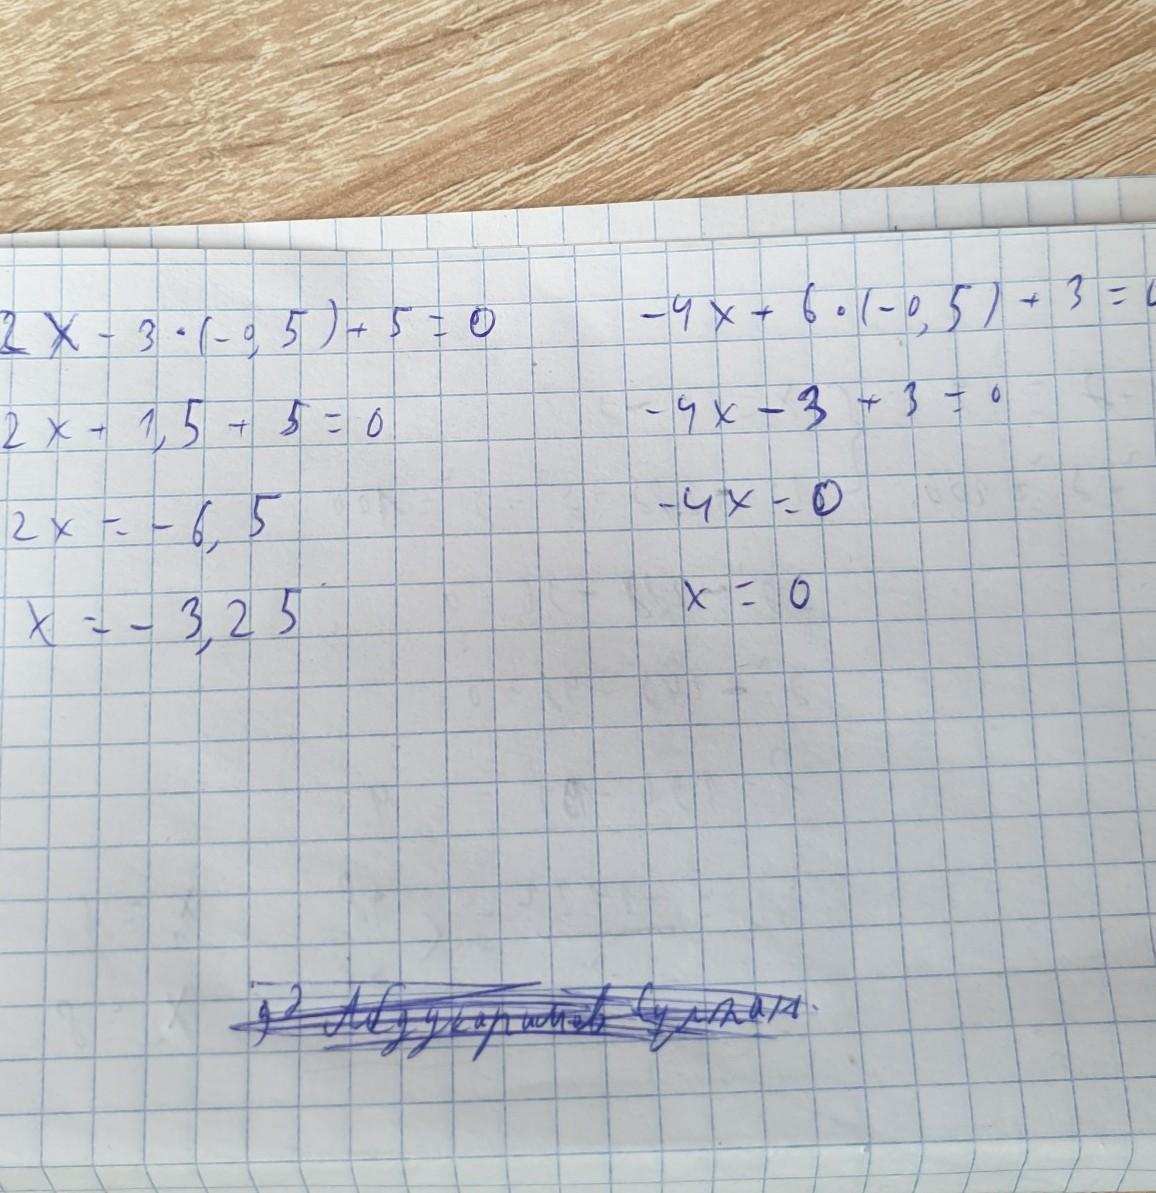 2x - 3·(-0,5) + 5 = 0
2x + 1,5 + 5 = 0
2x = - 6,5
x = - 3,25
-4x + 6·(-0,5) + 3 = 0
-4x - 3 + 3 = 0
-4x = 0
x = 0